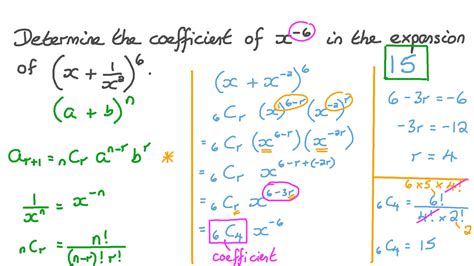 Determine the coefficient of x⁻⁶ in the expansion
of (x + 1/x²)⁶.
(a + b)ⁿ
aᵣ₊₁ = ₙCᵣ aⁿ⁻ʳ bʳ *
1/xⁿ = x⁻ⁿ
ₙCᵣ = n!/((n-r)! r!)
(x + x⁻²)⁶
= ₆Cᵣ (x)⁶⁻ʳ (x⁻²)ʳ
= ₆Cᵣ (x⁶⁻ʳ)(x⁻²ʳ)
= ₆Cᵣ x⁶⁻ʳ⁺⁽⁻²ʳ⁾
= ₆Cᵣ x⁶⁻³ʳ
= ₆C₄ x⁻⁶
coefficient
15
6 - 3r = -6
-3r = -12
r = 4
6 × 5 × 4!
₆C₄ = 6!/(4! × 2!)
2
₆C₄ = 15